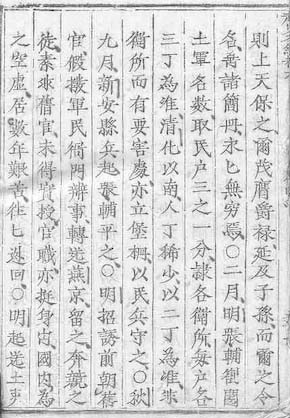 則上天保之爾茂膺爵禄延及子孫而爾之令
名垂諸簡冊永乜無穷焉〇二月明張輔衛閱
土軍名数取民户三之一分隷各衛所每户各
三丁為准清化以南人丁稀少以二丁為准來
衛所而有要害處亦立堡柵以民兵守之〇秋
九月新安縣兵起張輔平之〇明招誘前朝舊
官假擬軍民衙門辨事轉送燕京留之奔競之
徒素非舊官未得實授官職亦挺身内國内為
之空虛居數年艱黄往乜迯回〇明起送土吏